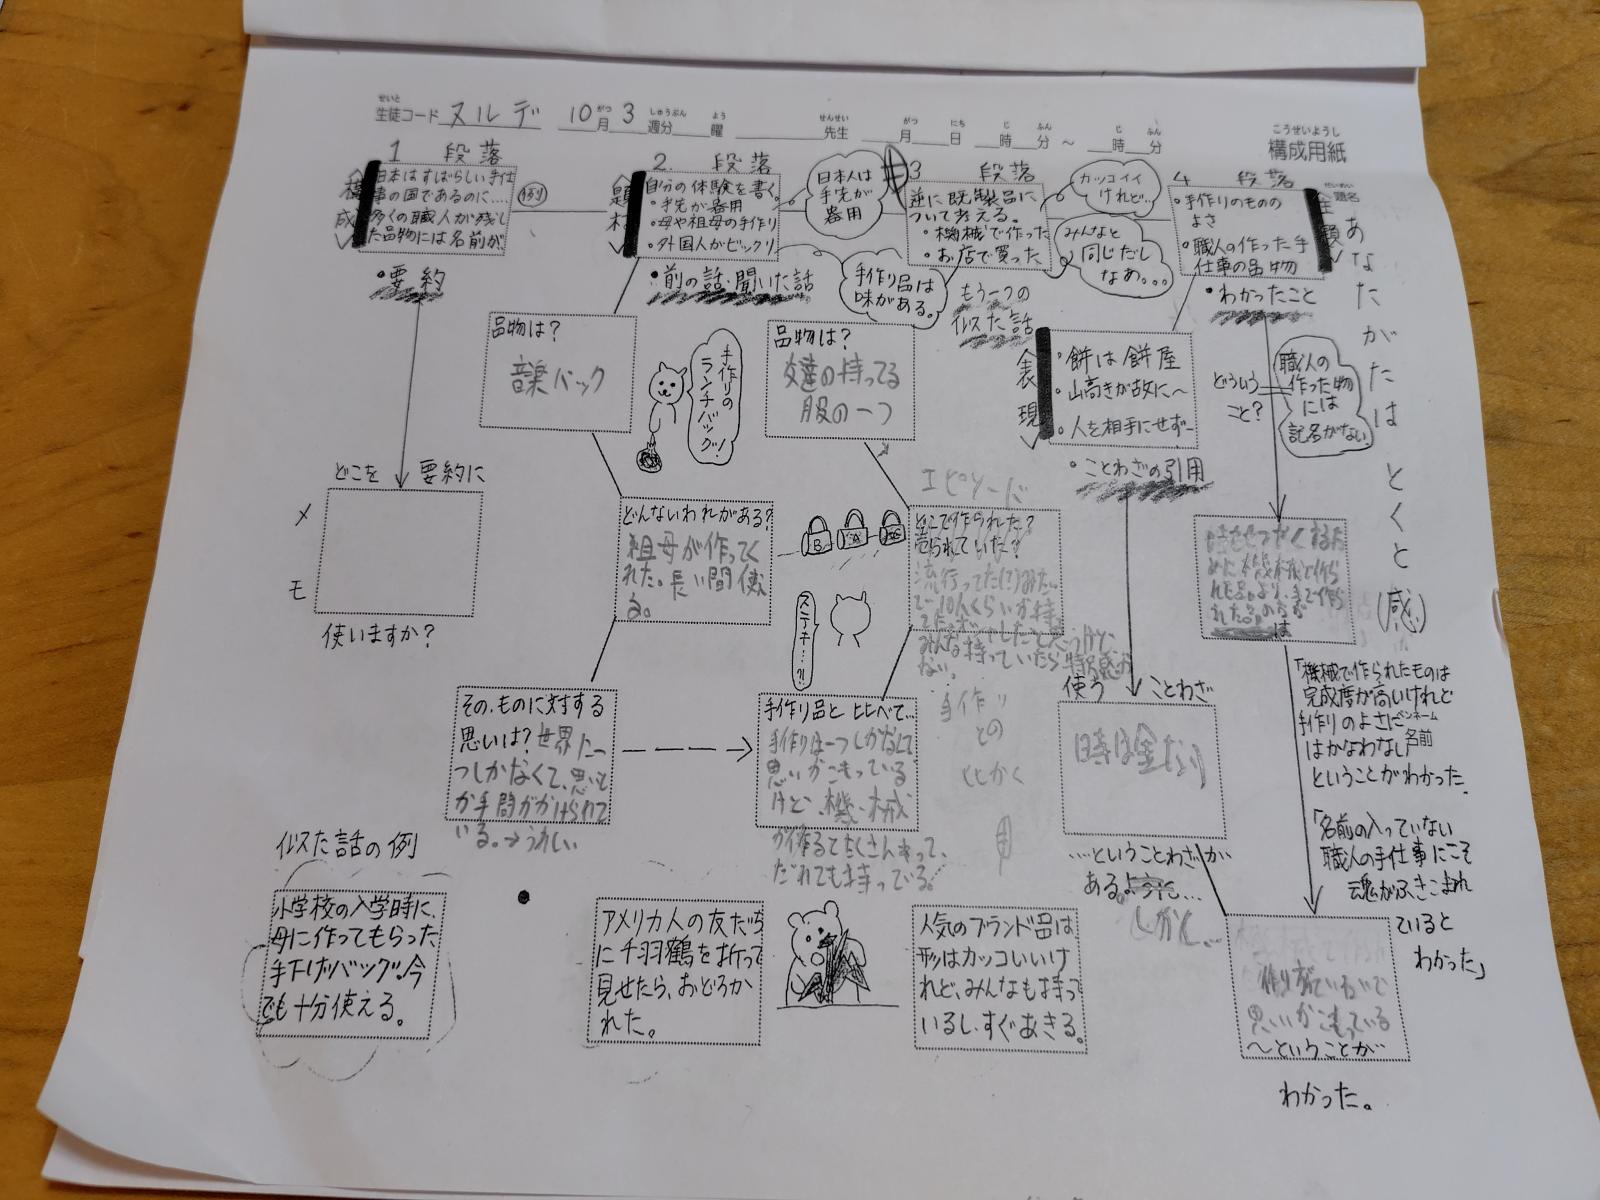 せいと
生徒コード ヌルデ 10月3週分 曜 先生 月 日 時 分 ～ 時 分
がつ しゅうぶん よう せんせい がつ にち じ ふん じ ふん
こうせいようし
構成用紙
1 段落
構成
日本はすばらしい手仕
事の国であるのに…
多くの職人が残し
た品物には名前が
例
・要約
どこを 要約に
メモ
使いますか?
2 段落
題材
自分の体験を書く。
・手先が器用
・母や祖母の手作り
・外国人がビックリ
・前の話・聞いた話
日本人は
手先が
器用
手作り品は
味がある。
品物は?
音楽バック
手作りの
ランチバッグ!
どんないわれがある?
祖母が作ってく
れた。長い間使え
る。
その、ものに対する
思いは?世界に一
つしかなくて、思いも
か手間がかけられて
いる。→うれしい
3 段落
逆に既製品に
ついて考える。
・機械で作った
・お店で買った
カッコイイ
けれど…
みんなと
同じだし
なあ。。。
もう一つの
似た話
品物は?
友達の持ってる
服の一つ
エピソード
どこで作られた?
売られていた?
流行ってた(?)みたい
で10人くらいが持っ
みんな持っていたら特別感が
ない。
B A C
ステキ…?!
手作り品と比べて…
手作りは一つしかなくて
思いがこもっている
けど、機械
が作るとたくさんあって、
だれでも持っている。
手作り
との
ひかく
表現
・餅は餅屋
・山高きが故に～
・人を相手にせず～
・ことわざの引用
使う ことわざ
時は金なり
…ということわざが
ある
しかし…
4 段落
・手作りのものの
よさ
・職人の作った手
仕事の品物
・わかったこと
主題
題名
あなたがたはとくと(感)
どういう
こと?
職人の
作った物
には
記名がない
時をせつやくするた
めに機械で作ら
れた品より、手で作ら
れたもののほうが
は
「機械で作られたものは
完成度が高いけれど
手作りのよさに
はかなわない」
ということがわかった。
ペンネーム
名前
「名前の入っていない
職人の手仕事にこそ
魂がふきこまれ
ていると
わかった」
作り方がていねいで
思いがこもっている
～ということが
わかった。
似た話の例
小学校の入学時に、
母に作ってもらった
手下げバッグ。今
でも十分使える。
アメリカ人の友だち
に千羽鶴を折って
見せたら、おどろか
れた。
人気のブランド品は
形はカッコいいけ
れど、みんなも持って
いるし、すぐあきる。